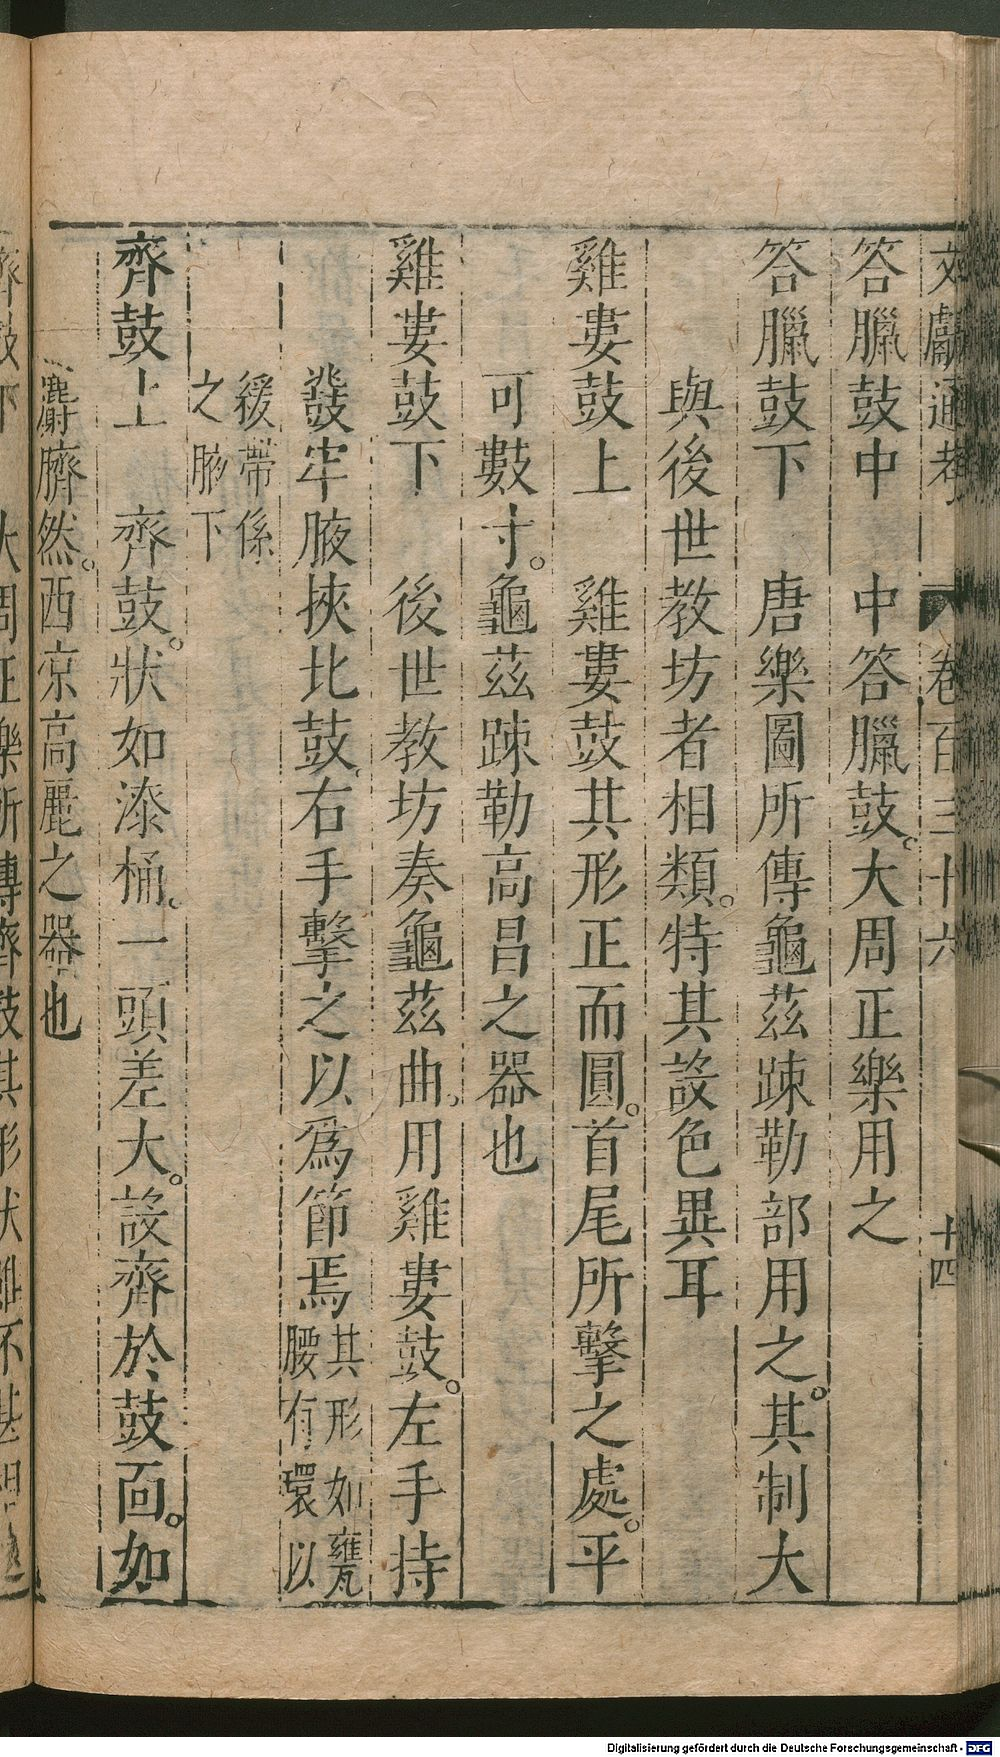 文獻通考 卷百三十六 十四
答臘鼓中 中答臘鼓。大周正樂用之
答臘鼓下 唐樂圖所傳龜茲踈勒部用之。其制大
與後世教坊者相類。特其設色異耳
雞婁鼓上 雞婁鼓其形正而圓。首尾所擊之處。平
可數寸。龜茲踈勒高昌之器也
雞婁鼓下 後世教坊奏龜茲曲。用雞婁鼓。左手持
鼗牢腋挾比鼓。右手擊之以爲節焉 其形如甕 腰有環以
綬帶係 之腋下
齊鼓上 齊鼓。狀如漆桶。一頭差大。設齊於鼓面。如
麝臍然。西京高麗之器也
齊鼓下 大周正樂所傳齊鼓其形狀雖不甚相
Digitalisierung gefördert durch die Deutsche Forschungsgemeinschaft - DFG